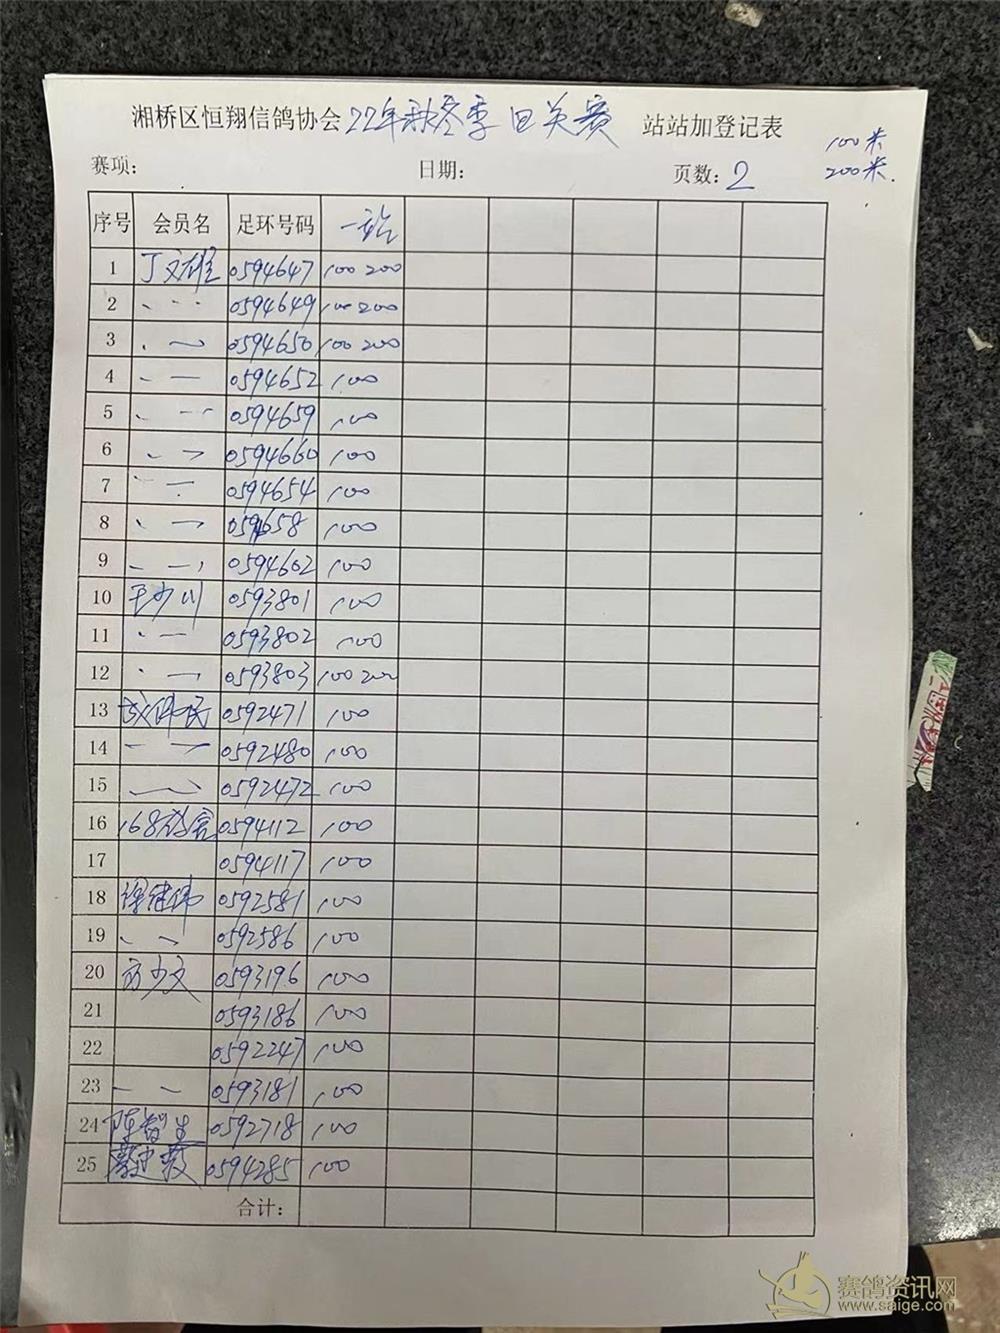 湘桥区恒翔信鸽协会22年秋冬季四关赛 站站加登记表
100米
200米.
赛项: 日期: 页数: 2
序号 会员名 足环号码 一站
1 丁文雄 0594647 100 200
2 0594649 100 200
3 0594650 100 200
4 0594652 100
5 0594659 100
6 0594660 100
7 0594654 100
8 0594658 100
9 0594602 100
10 少川 0593801 100
11 0593802 100
12 0593803 100 200
13 0592471 100
14 0592480 100
15 0592472 100
16 168 0594112 100
17 0594117 100
18 0592581 100
19 0592586 100
20 方少文 0593196 100
21 0593186 100
22 0592247 100
23 0593181 100
24 陈智生 0592718 100
25 0594285 100
合计:
赛鸽资讯网
www.saige.com